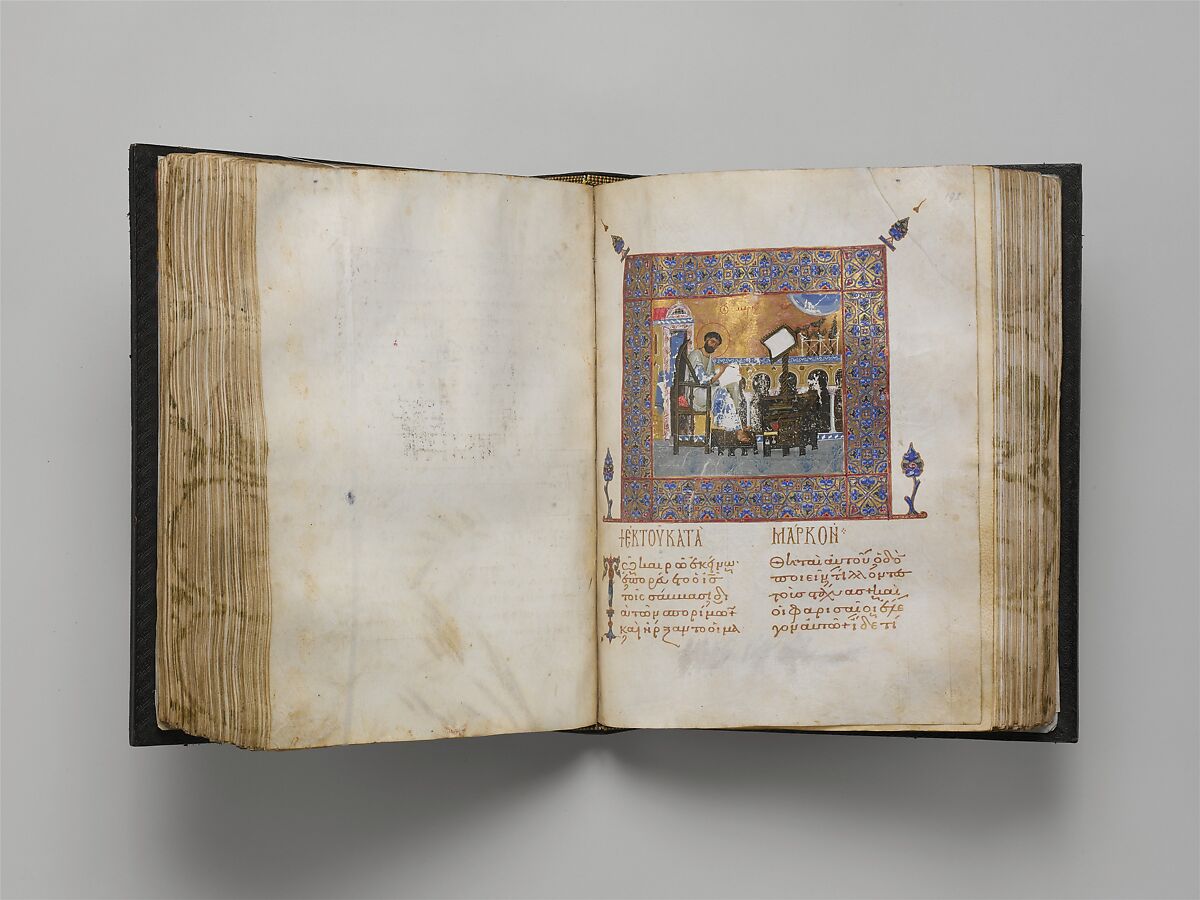 ἘΚ ΤΟΥ͂ ΚΑΤᾺ ΜΆΡΚΟΝ
Τῶ καιρῶ ἐκείνω
ἐπορεύετο ὁ ις
τοῖς σάββασι δι
ὰ τῶν σπορίμων+
καὶ ἤρξαντο οἱ μα
θηταὶ αὐτοῦ ὁδο
ποιεῖν τίλλοντες
τοὺς στάχυας+ καὶ
οἱ φαρισαῖοι ἔλε
γον αὐτῶ+ ἴδε τί